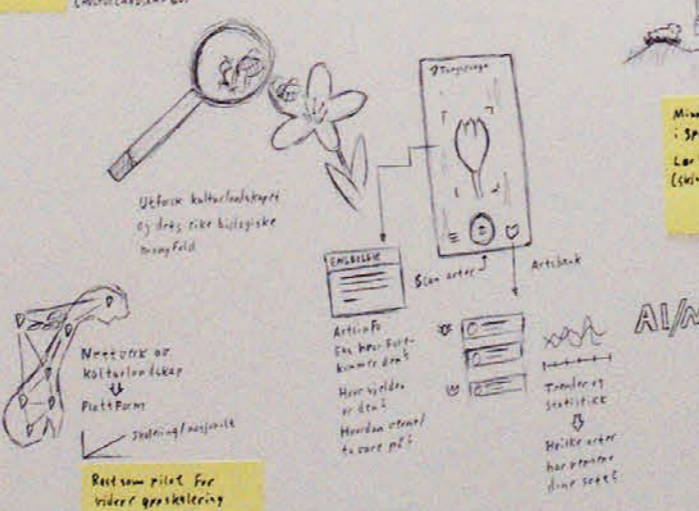 Utforsk kulturlandskapet
og dets rike biologiske
mangfold
Scan arter
Artsbank
Artsinfo
Hvor sjelden
er den?
Hvordan verne/
ta vare på?
Trender og
statistikk
Hvilke arter
har vennene
dine sett?
AI/
Nettverk av
kulturlandskap
Plattform
Skalering/nasjonalt
som pilot for
videre oppskalering